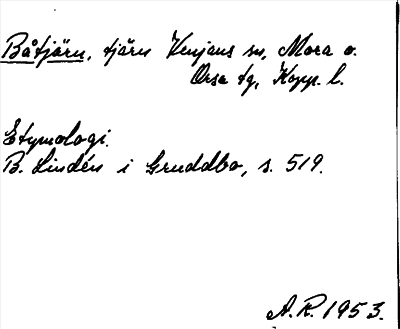 Båtjärn, tjärn Venjans sn, Mora o.
Orsa tg, Kopp. l.
Etymologi.
B. Lindén i Gruddbo, s. 519.
A.R. 1953.